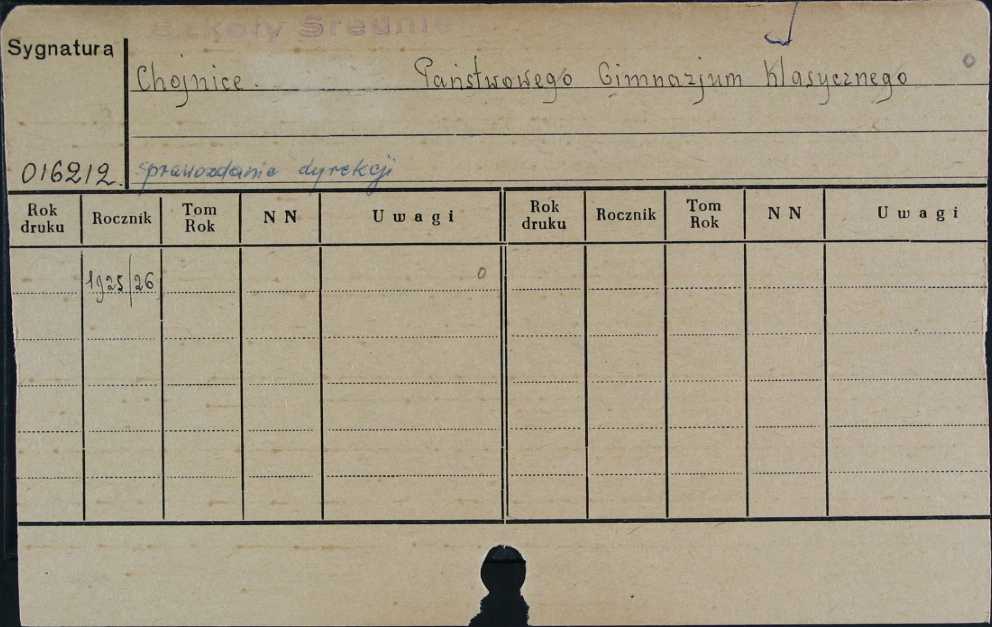 Szkoły Średnie
Sygnatura
Chojnice. Państwowego Gimnazjum Klasycznego
016212. sprawozdanie dyrekcji
Rok druku Rocznik Tom Rok N N Uwagi Rok druku Rocznik Tom Rok N N Uwagi
1925/26